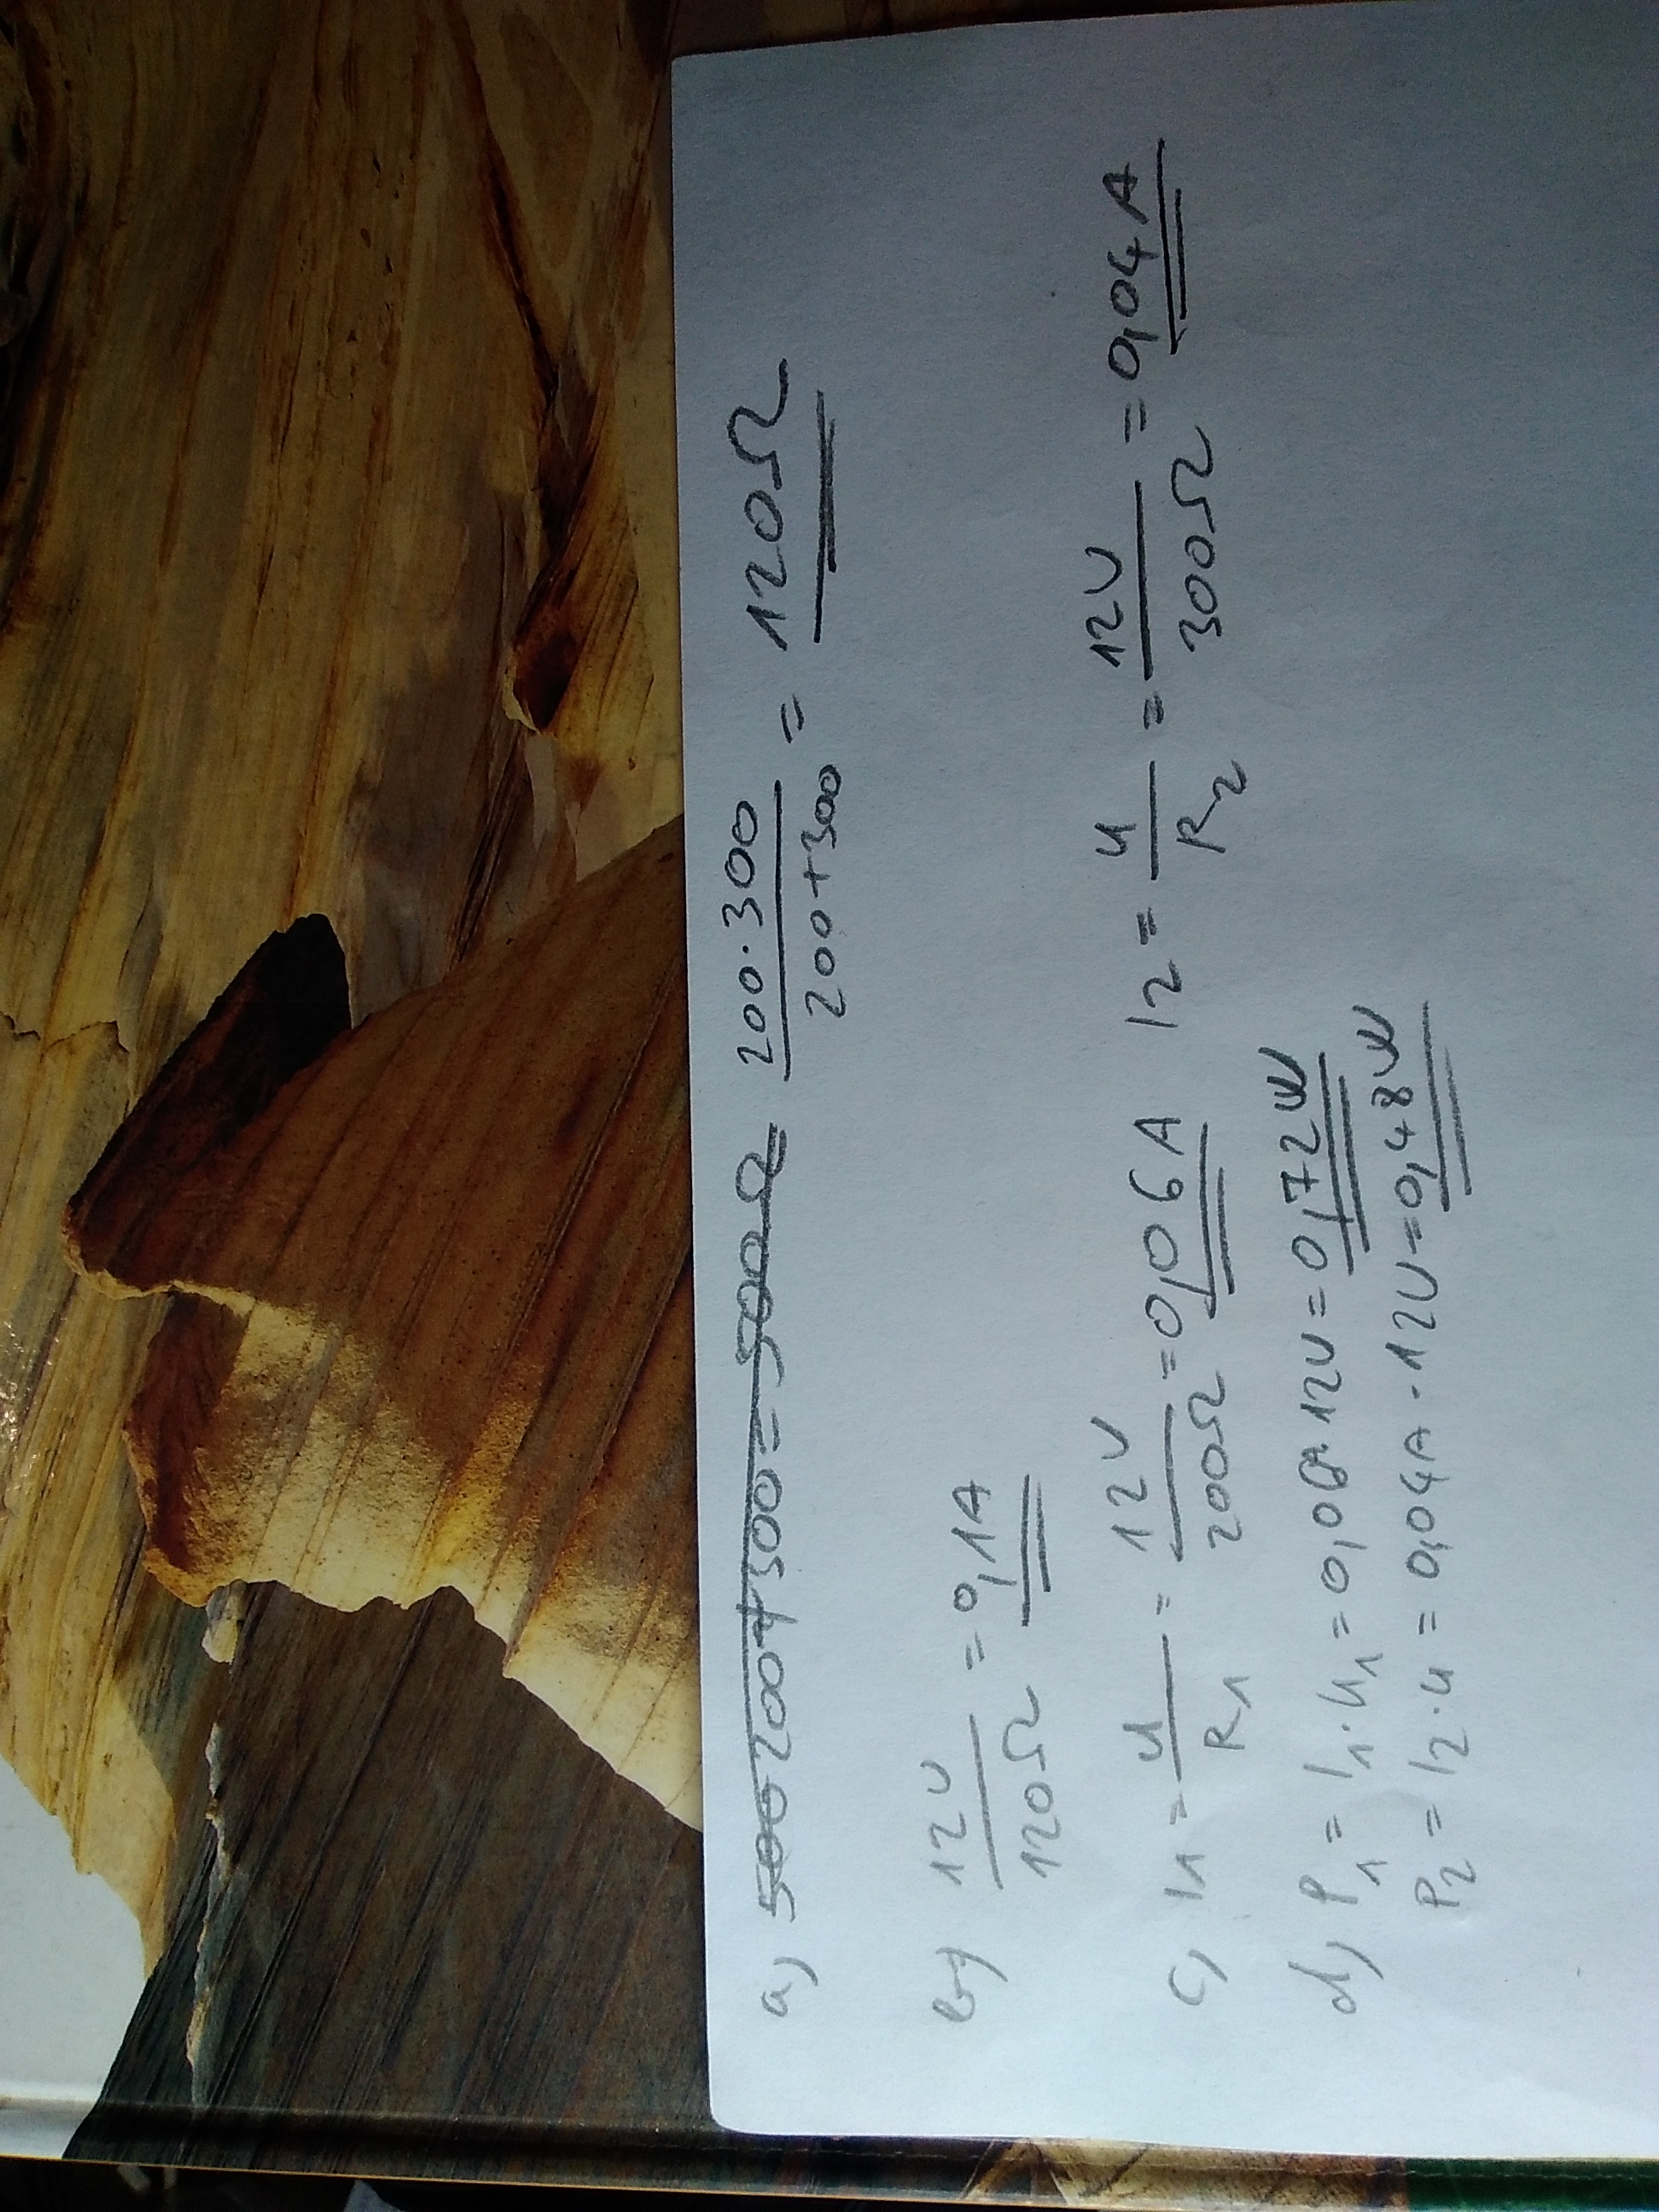 a) 500 200+300 = 500Ω = 200·300 / 200+300 = 120Ω
b) 12V / 120Ω = 0,1A
c) I1 = U / R1 = 12V / 200Ω = 0,06A I2 = U / R2 = 12V / 300Ω = 0,04A
d) P1 = I1·U1 = 0,06A·12V = 0,72W
P2 = I2·U = 0,04A·12V = 0,48W